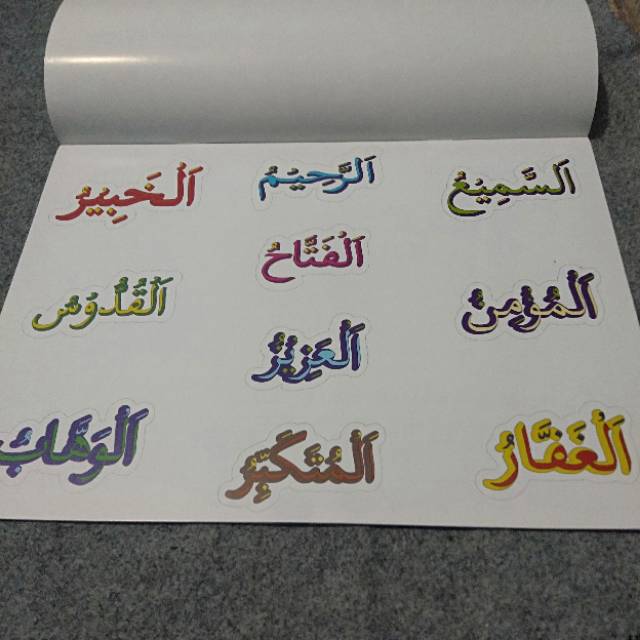 اَلسَّمِيْعُ
اَلرَّحِيْمُ
اَلْخَبِيْرُ
اَلْفَتَّاحُ
اَلْمُؤْمِنُ
اَلْقُدُّوْسُ
اَلْعَزِيْزُ
اَلْغَفَّارُ
اَلْمُتَكَبِّرُ
اَلْوَهَّابُ